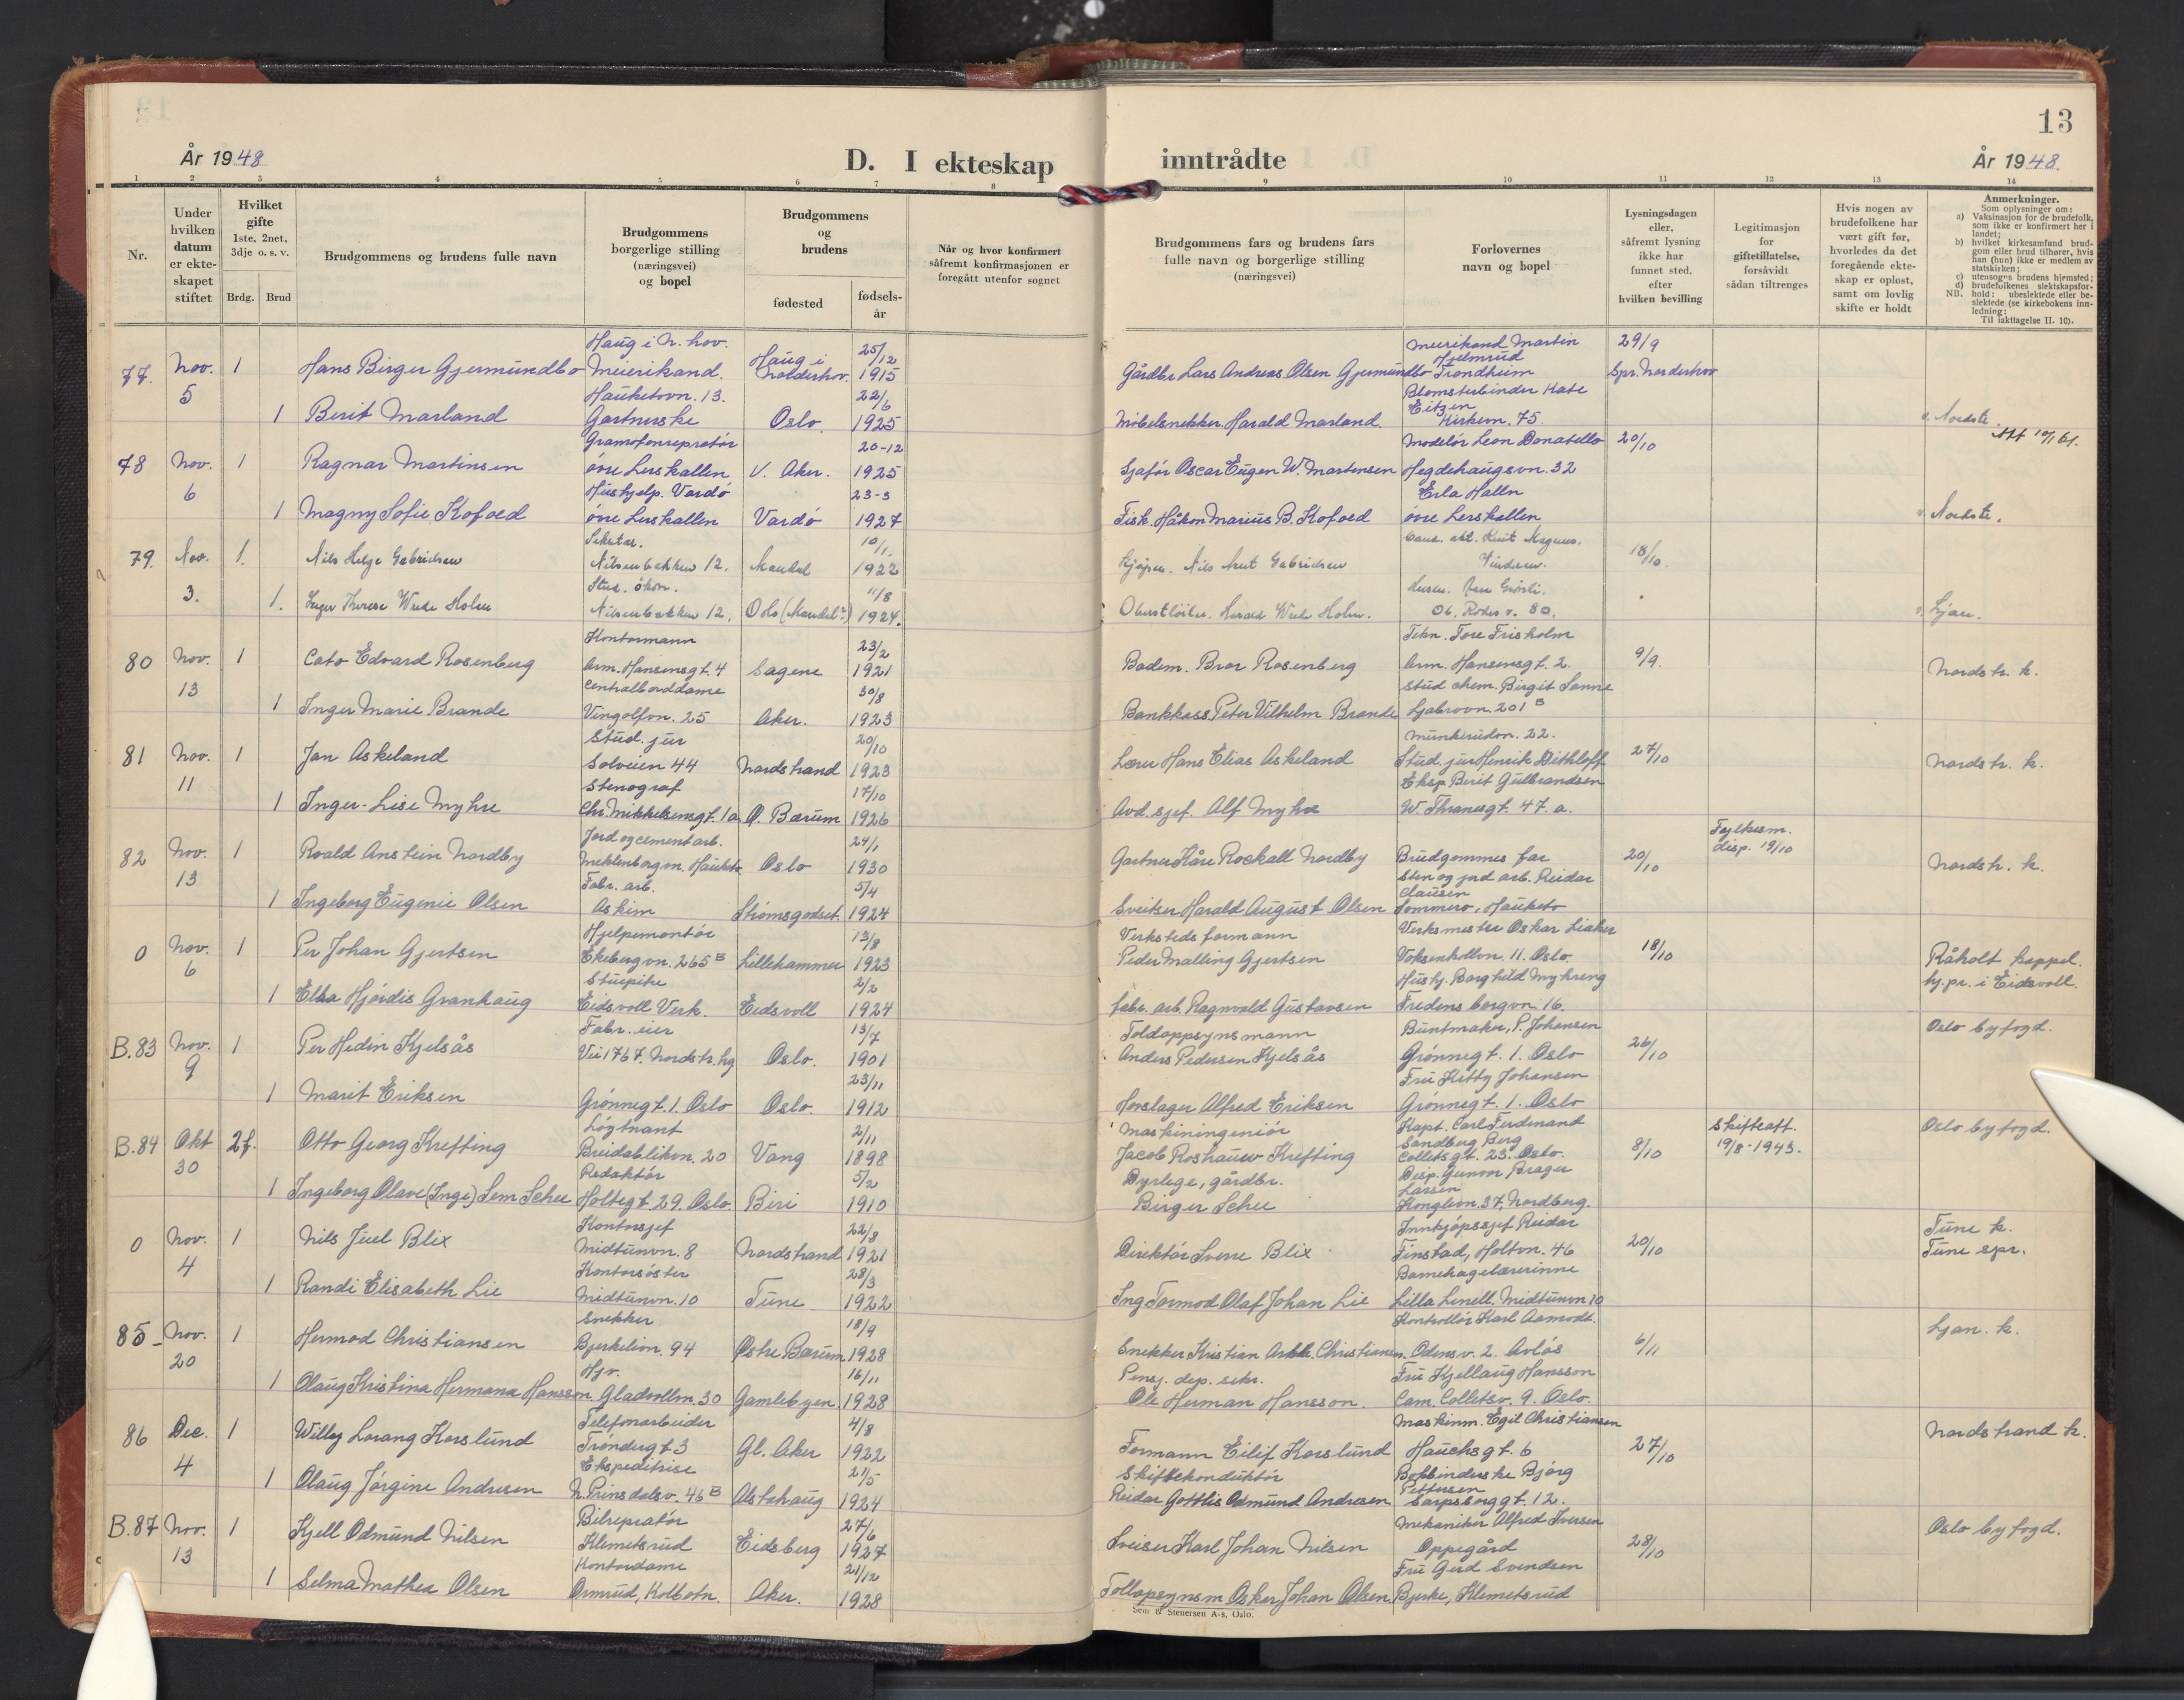 13
År 1948
D. I ekteskap inntrådte
År 1948.
1 2 3 4 5 6 7 8 9 10 11 12 13 14
Nr.
Under hvilken datum er ekte-skapet stiftet
Hvilket gifte
1ste, 2net, 3dje o. s. v.
Brdg. Brud
Brudgommens og brudens fulle navn
Brudgommens borgerlige stilling (næringsvei) og bopel
Brudgommens og brudens
fødested
fødsels-år
Når og hvor konfirmert såfremt konfirmasjonen er foregått utenfor sognet
Brudgommens fars og brudens fars fulle navn og borgerlige stilling (næringsvei)
Forlovernes navn og bopel
Lysningsdagen eller, såfremt lysning ikke har funnet sted, efter hvilken bevilling
Legitimasjon for giftetillatelse, forsåvidt sådan tiltrenges
Hvis nogen av brudefolkene har vært gift før, hvorledes da det foregående ekte-skap er opløst, samt om lovlig skifte er holdt
Anmerkninger.
Som oplysninger om:
a) Vaksinasjon for de brudefolk, som ikke er konfirmert her i landet;
b) hvilket kirkesamfund brud-gom eller brud tilhører, hvis han (hun) ikke er medlem av statskirken;
c) utensogns brudens hjemsted;
d) brudefolkenes slektskapsfor-
NB. hold: ubeslektede eller be-slektede (se kirkebokens inn-ledning:
Til iakttagelse II. 10).
77. Nov. 5 1 Hans Birger Gjermundbo Haug i N. hov. Meierikand. Haug i Norderhov. 25/12 1915 Gårdbr Lars Andreas Olsen Gjermundbo Meierikand Martin Hjelmrud Trondheim 29/9 Spr. Norderhov
1 Berit Marland Hauketovn. 13. Gartnerske Oslo. 22/6 1925 Møbelsnekker Harald Marland. Blomsterbinder Kate Eitzen Kirkevn. 75.
78 Nov. 6 1 Ragnar Martinsen Gramofonrepratør øvre Lerskallen V. Aker. 20-12 1925 Sjafør Oscar Eugen W. Martensen Modelør Leon Donatello Hegdehaugsvn. 32 20/10
1 Magny Sofie Kofoed Hushjelp. Vardø øvre Lerskallen Vardø 23-3 1927 Fisk. Håkon Marius B. Kofoed Erla Halln øvre Lerskallen
79. Nov. 3. 1. Nils Helge Gabrielsen Sekretær. Nilsenbakken 12. Mandal 10/1 1922 Nils Gabrielsen 18/10.
1. Inger Therese Wrede Holm Stud. økon. Nilsenbakken 12. Oslo (Mandal?) 11/8 1924. Oberstløitn. Harald Wrede Holm. Ob. Rodes v. 80. Ljan.
80 Nov. 13 1 Cato Edvard Rosenberg Kontormann Arm. Hansensgt. 4 Sagene 23/2 1921 Bademester Bror Rosenberg Tekn. Tore Frisholm Arm. Hansensgt. 2. 9/9. Nordstr. k.
1 Inger Marie Brande Centralborddame Vingolfvn. 25 Aker. 30/8 1923 Bankkass. Peter Vilhelm Brande Stud chem. Birgit Sanne Ljabrovn. 201 B
81 Nov. 11 1 Jan Askeland Stud. jur Solveien 44 Nordstrand 20/10 1923 Lærer Hans Elias Askeland Munkerudvn. 22. Stud. jur Henrik Dithloff 27/10 Nordstr. k.
1 Inger-Lise Myhre Stenograf Chr. Mikkelsensgt. 1a Ø. Bærum 17/10 1926 Avd. sjef. Alf Myhre Eksp Berit Gulbrandsen W. Thranesgt. 47. a.
82 Nov. 13 1 Roald Anstein Nordby Jord og cementarb. Meklenborgvn. Hauketo. Oslo 24/1 1930 Gartner Kåre Rockall Nordby Brudgommes far 20/10 Fylkesm. disp. 19/10 Nordstr. k.
1 Ingeborg Eugenie Olsen Fabr. arb. Askim Strømsgodset 5/4 1924 Sveitser Harald August Olsen Sten og jord arb. Reidar Clausen Sommero, Hauketo
0 Nov. 6 1 Per Johan Gjertsen Hjelpemontør Ekebergvn. 265 B Lillehammer 13/8 1923 Verksteds formann Peder Malling Gjertsen Verksmester Oskar Liaker Voksenkollvn. 11. Oslo 18/10 Råholt kappel. Sp. pr. i Eidsvoll.
1 Elsa Hjørdis Grankaug Stuepike Eidsvoll Verk. Eidsvoll 2/2 1924 Fabr. arb. Ragnvald Gustavsen Hushj. Borghild Myhreng Fredensborgvn. 16.
B.83 Nov. 9 1 Per Hedin Kjelsås Fabr. eier Vei 1767. Nordstr. hg Oslo. 13/7 1901 Toldoppsynsmann Anders Pedersen Kjelsås Buntmaker, P. Johansen Grønnegt. 1. Oslo 26/10 Oslo byfogd.
1 Marit Eriksen Grønnegt. 1. Oslo Oslo. 23/11 1912 Horslager Alfred Eriksen Fru Kitty Johansen Grønnegt. 1. Oslo
B.84 Okt 30 2f. Otto Georg Krefting Løytnant Breidablikvn. 20 Vang 2/11 1898 Maskiningeniør Jacob Roshauw Krefting Kapt. Carl Ferdinand Sandberg Berg Colletsgt. 23. Oslo. 8/10 Skifteatt. 19/8-1943. Oslo byfogd.
1 Ingeborg Olave (Inge) Sem Schee Redaktør Holtegt. 29. Oslo. Biri 5/2 1910 Dyrlege, gårdbr. Birger Schee Disp. Gunvor Brager Larsen Konglevn. 37, Nordberg.
0 Nov. 4 1 Nils Juel Blix Kontorsjef Midtunvn. 8 Nordstrand 22/8 1921 Direktør Sverre Blix Innkjøpssjef Reidar Finstad, Holtvn. 46 20/10 Tune k. Tune spr.
1 Randi Elisabeth Lie Kontorsøster Midtunvn. 10 Tune 28/3 1922 Ing Tormod Olaf Johan Lie Barnehagelærerinne Lilla Linell. Midtunvn 10
85 Nov. 20 1 Hermod Christiansen Snekker Bjerkelivn. 94 Østre Bærum 18/9 1928 Snekker Kristian Christiansen. Kontrollør Karl Aamodt. Odensv. 2. Avløs 6/11 Ljan. k.
1 Olaug Kristina Hermana Hansson Hjv. Gladvollvn. 30 Gamlebyen 16/11 1928 Pensj. dep. sekr. Ole Herman Hansson. Fru Kjellaug Hansson Cam. Colletsv. 9. Oslo.
86 Dec. 4 1 Willy Lorang Korslund Telefonarbeider Trøndergt 3 Gl. Aker 4/8 1922 Formann Eilif Korslund Maskinm. Egil Christiansen Hauchsgt. 6 27/10 Nordstrand k.
1 Olaug Jørgine Andresen Ekspeditrise N. Prinsdalsv. 46 B Alstahaug 21/5 1924 Skiftekonduktør Reidar Gottlis Odmund Andresen Bokbinderske Bjørg Pettersen Sarpsborggt. 12.
B.87 Nov. 13 1 Kjell Odmund Nilsen Bilrepratør Klemetsrud Eidsberg 27/6 1927 Sveiser Karl Johan Nilsen Mekaniker Alfred Iversen Oppegård 28/10 Oslo byfogd.
1 Selma Mathea Olsen Kontordame Ormrud, Kolbotn. Aker. 21/12 1928 Tollopsynsm Oskar Johan Olsen Fru Gerd Svendsen Bjerke, Klemetsrud
Sem & Stenersen A-s, Oslo.